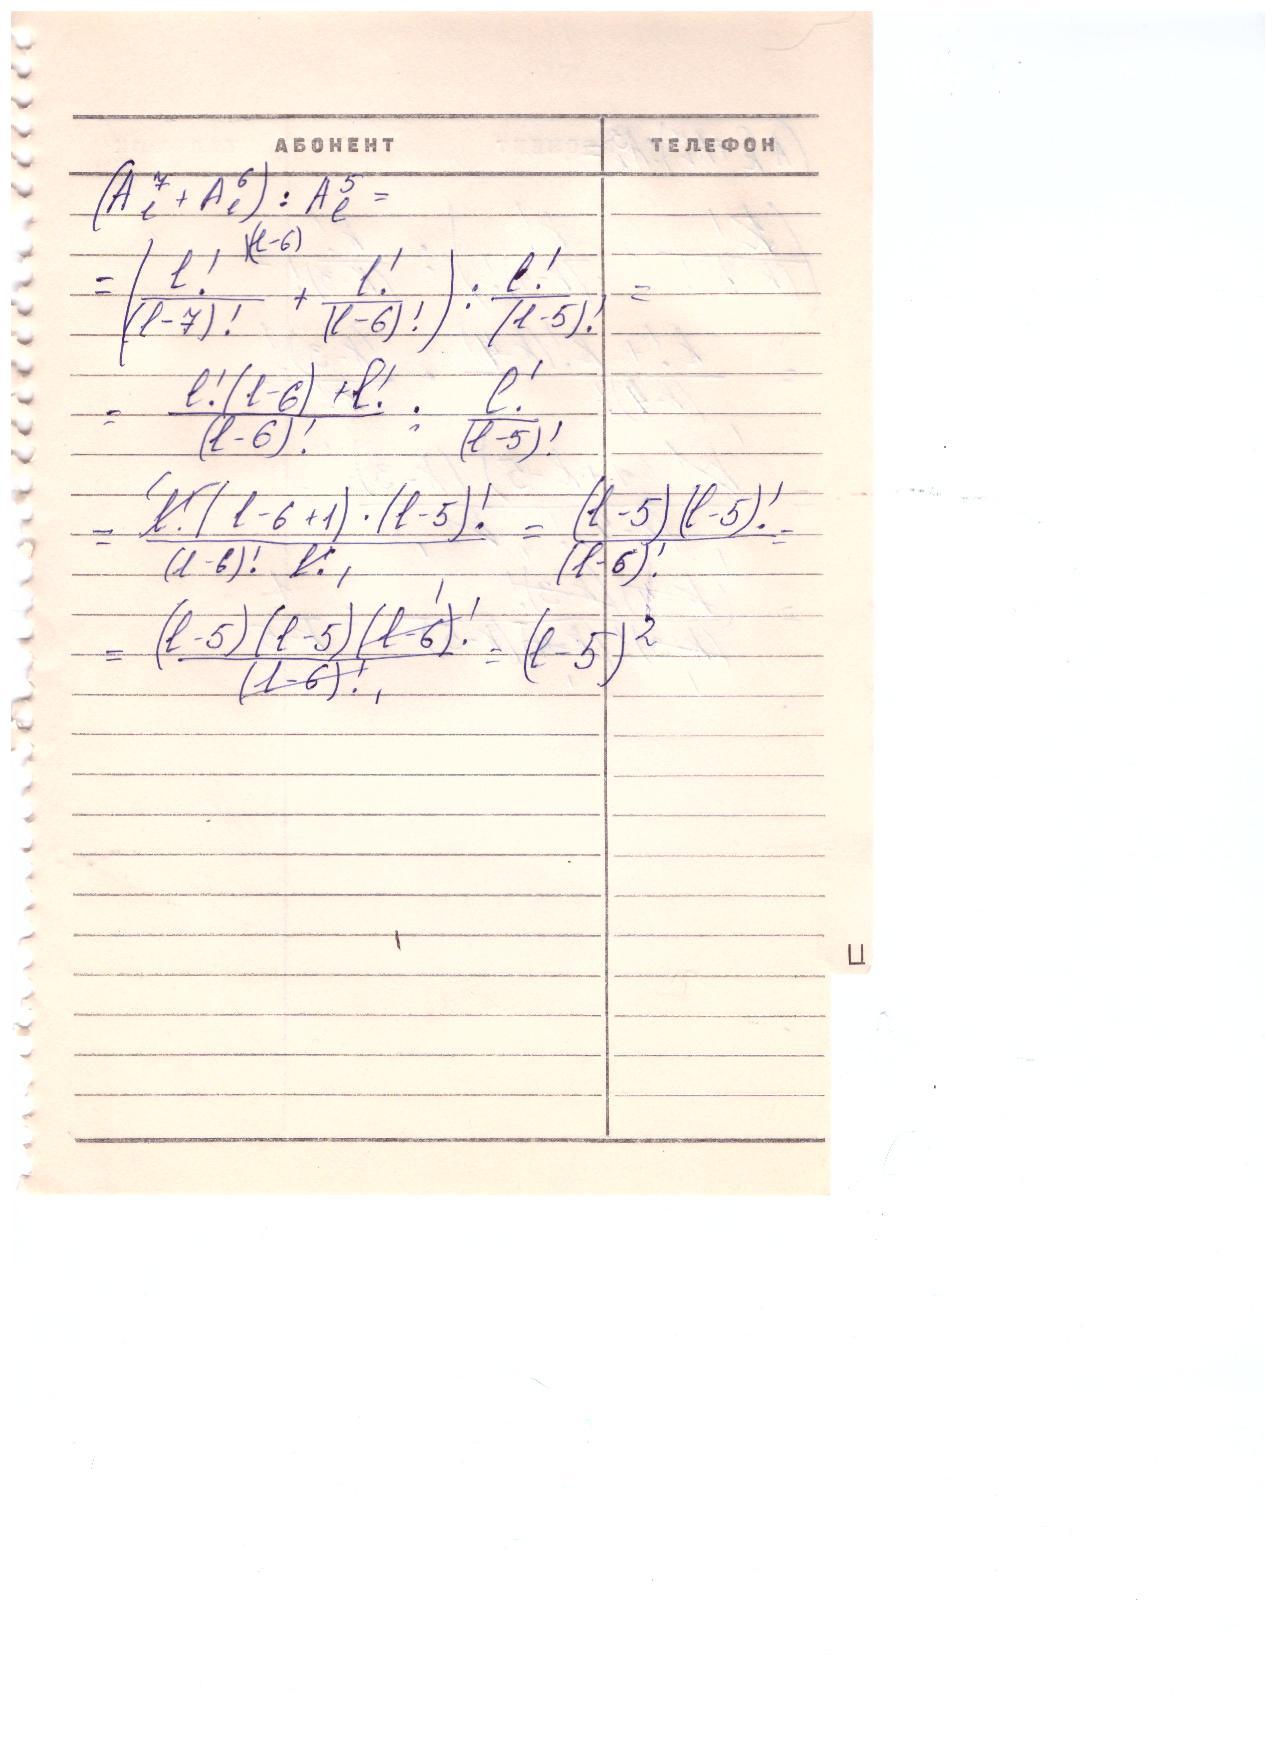 АБОНЕНТ ТЕЛЕФОН
(A_l^7 + A_l^6) : A_l^5 =
= (l!/(l-7)! \(l-6) + l!/(l-6)!) : l!/(l-5)! =
= (l!(l-6) + l!)/(l-6)! : l!/(l-5)!
= (l!(l-6+1)·(l-5)!)/((l-6)! l!) = ((l-5)(l-5)!)/(l-6)! =
= ((l-5)(l-5)(l-6)!)/(l-6)! = (l-5)^2
Ц